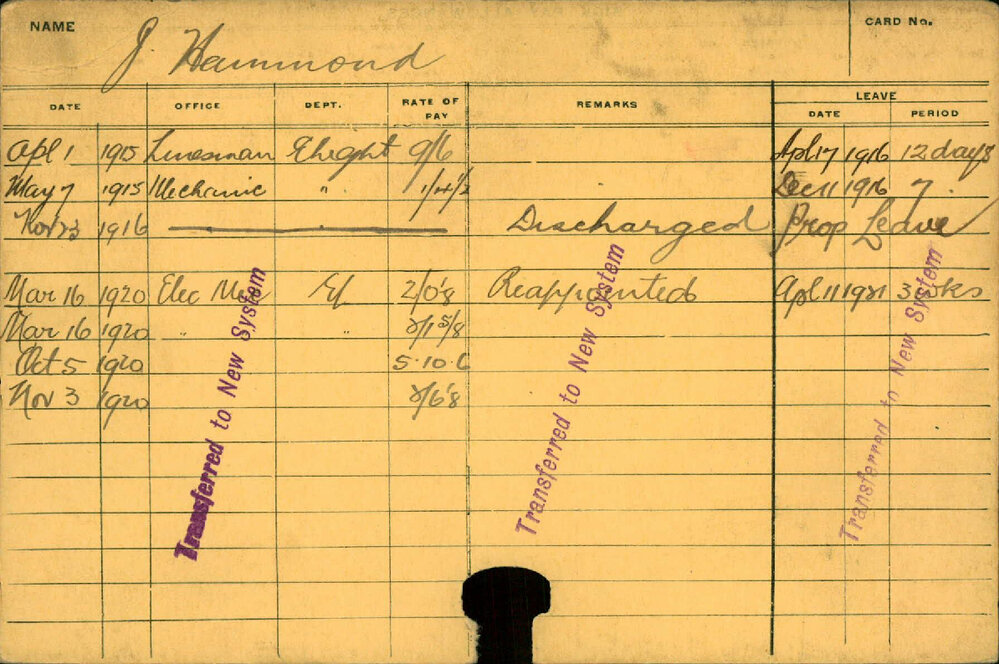 NAME J. Hammond CARD No.
DATE OFFICE DEPT. RATE OF PAY REMARKS LEAVE DATE PERIOD
Apl 1 1915 Linesman Elight 9/6 Apl 17 1916 12 days
May 7 1915 Mechanic " Dec 11 1916 7
Nov 23 1916 Discharged Prop Leave
Mar 16 1920 Elec Mec 2/0'8 Reappointed Apl 11 1921 3 wks
Mar 16 1920 " " 2/1 5/8
Oct 5 1920 5.10.6
Nov 3 1920 2/6'8
Transferred to New System
Transferred to New System
Transferred to New System